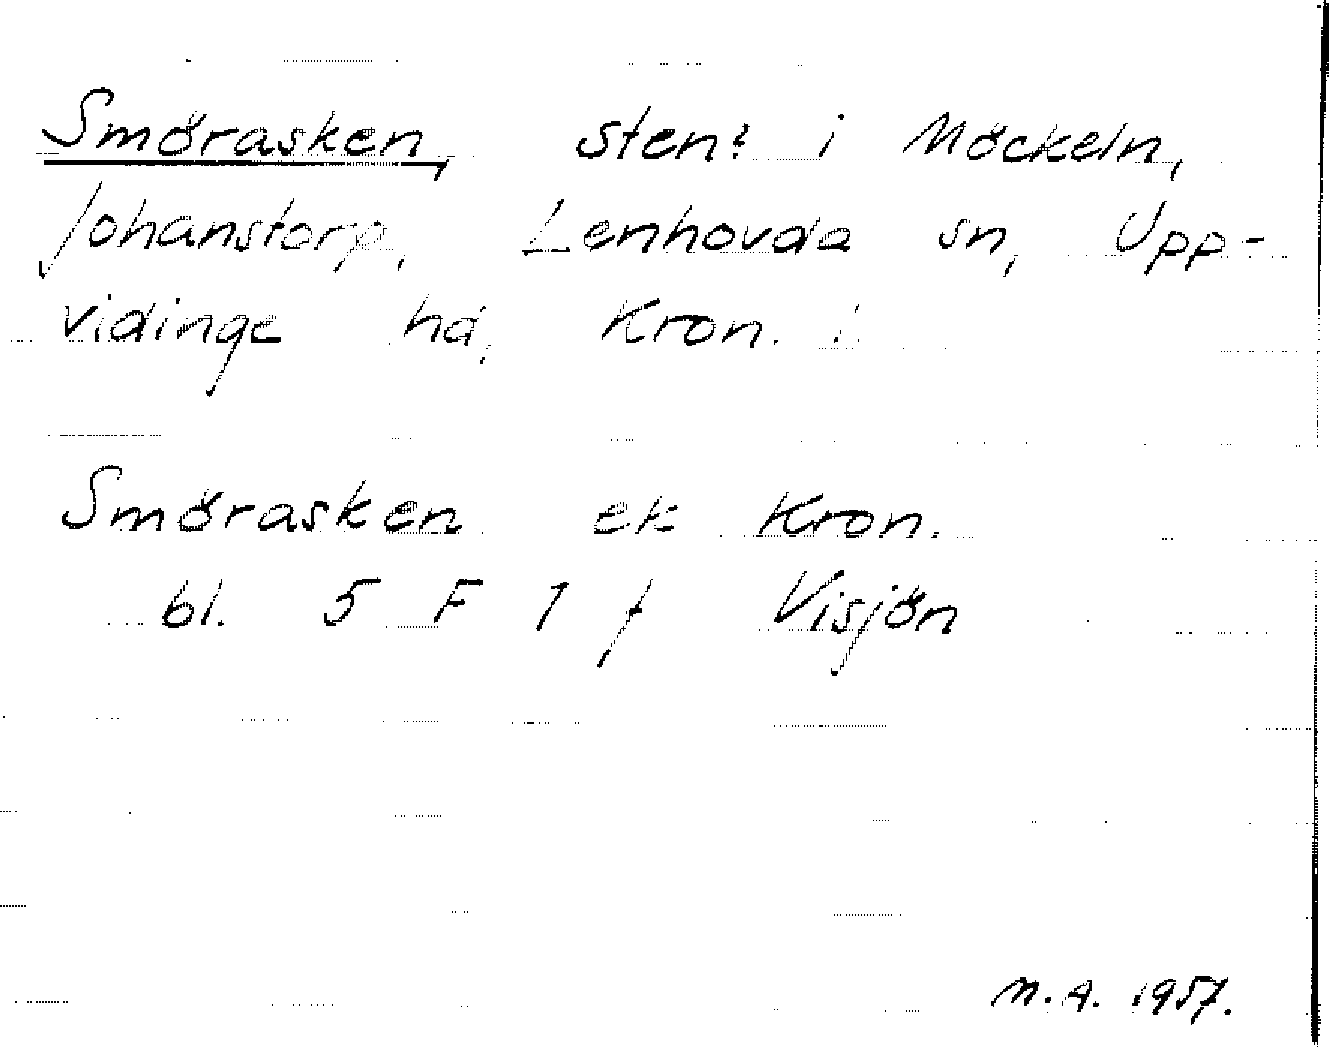 Smörasken, sten? i Möckeln,
Johanstorp, Lenhovda sn, Upp-
vidinge hd, Kron. l
Smörasken ek Kron.
bl. 5 F 1 f Visjön
M.A. 1957.